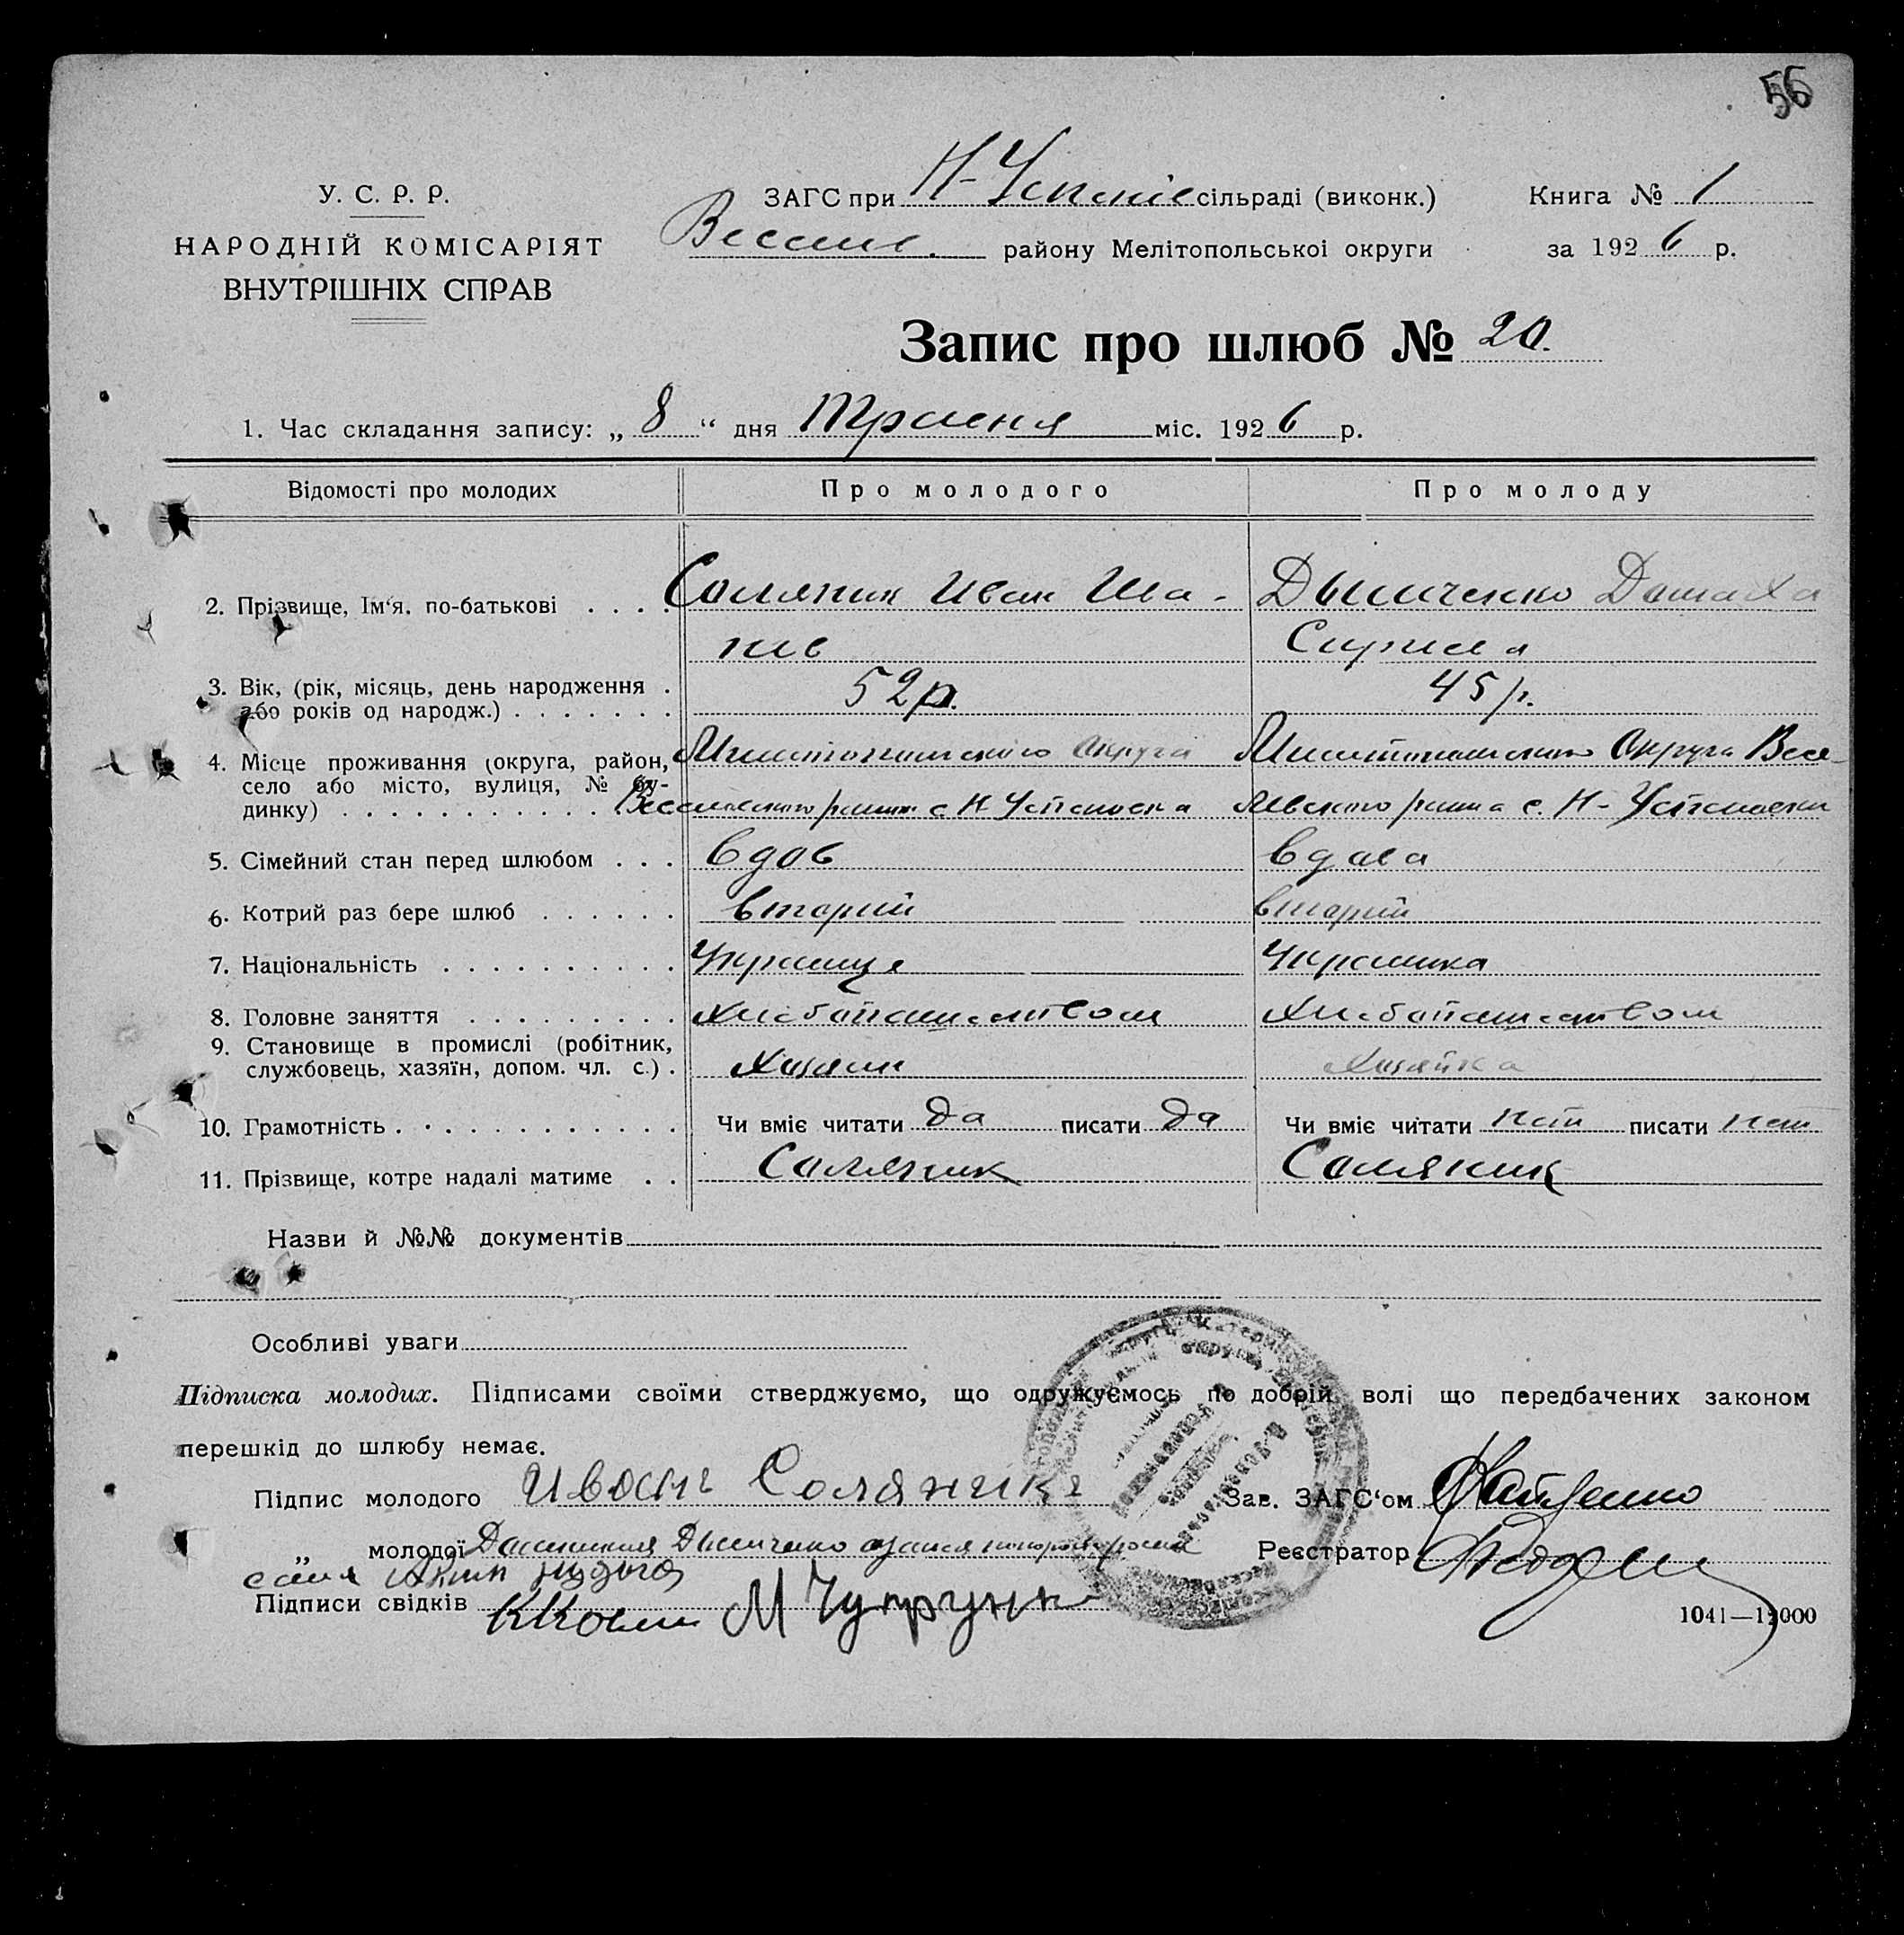 56
У. С. Р. Р.
НАРОДНІЙ КОМІСАРІЯТ
ВНУТРІШНІХ СПРАВ
ЗАГС при Н-Успеніе сільраді (виконк.) Книга № 1
району Мелітопольської округи за 1926 р.
Запис про шлюб № 20.
1. Час складання запису: „ 8 “ дня Траеня міс. 1926 р.
Відомості про молодих Про молодого Про молоду
2. Прізвище, Ім‘я, по-батькові . . . . Соляник Иван Ива- Дымченко Домаха
нив
3. Вік, (рік, місяць, день народження . 52 р. 45 р.
або років од народж.) . . . . . . .
4. Місце проживання (округа, район, Мелитопольского Округа Мелитопольского Округа Весе-
село або місто, вулиця, № бу-
динку) . . . . . . . . . . . Веселовского района с Н Успеновка ловского района с. Н-Успеновки
5. Сімейний стан перед шлюбом . . . вдов вдова
6. Котрий раз бере шлюб . . . . . . вторий вторий
7. Національність . . . . . . . . . . Украинце Украинка
8. Головне заняття . . . . . . . . . Хлебопашеством Хлебопашеством
9. Становище в промислі (робітник,
службовець, хазяїн, допом. чл. с.) . Хозяин Хозяйка
10. Грамотність . . . . . . . . . . . . Чи вміє читати да писати да Чи вміє читати нет писати нет
11. Прізвище, котре надалі матиме . . Соляник Соляник
Назви й №№ документів
Особливі уваги
Підписка молодих. Підписами своїми стверджуємо, що одружуємось по добрій волі що передбачених законом
перешкід до шлюбу немає.
Підпис молодого Иванъ Соляникъ Зав. ЗАГС‘ом
„ молодої Дымченко Реєстратор
Підписи свідків М Чупрунъ
1041—15000